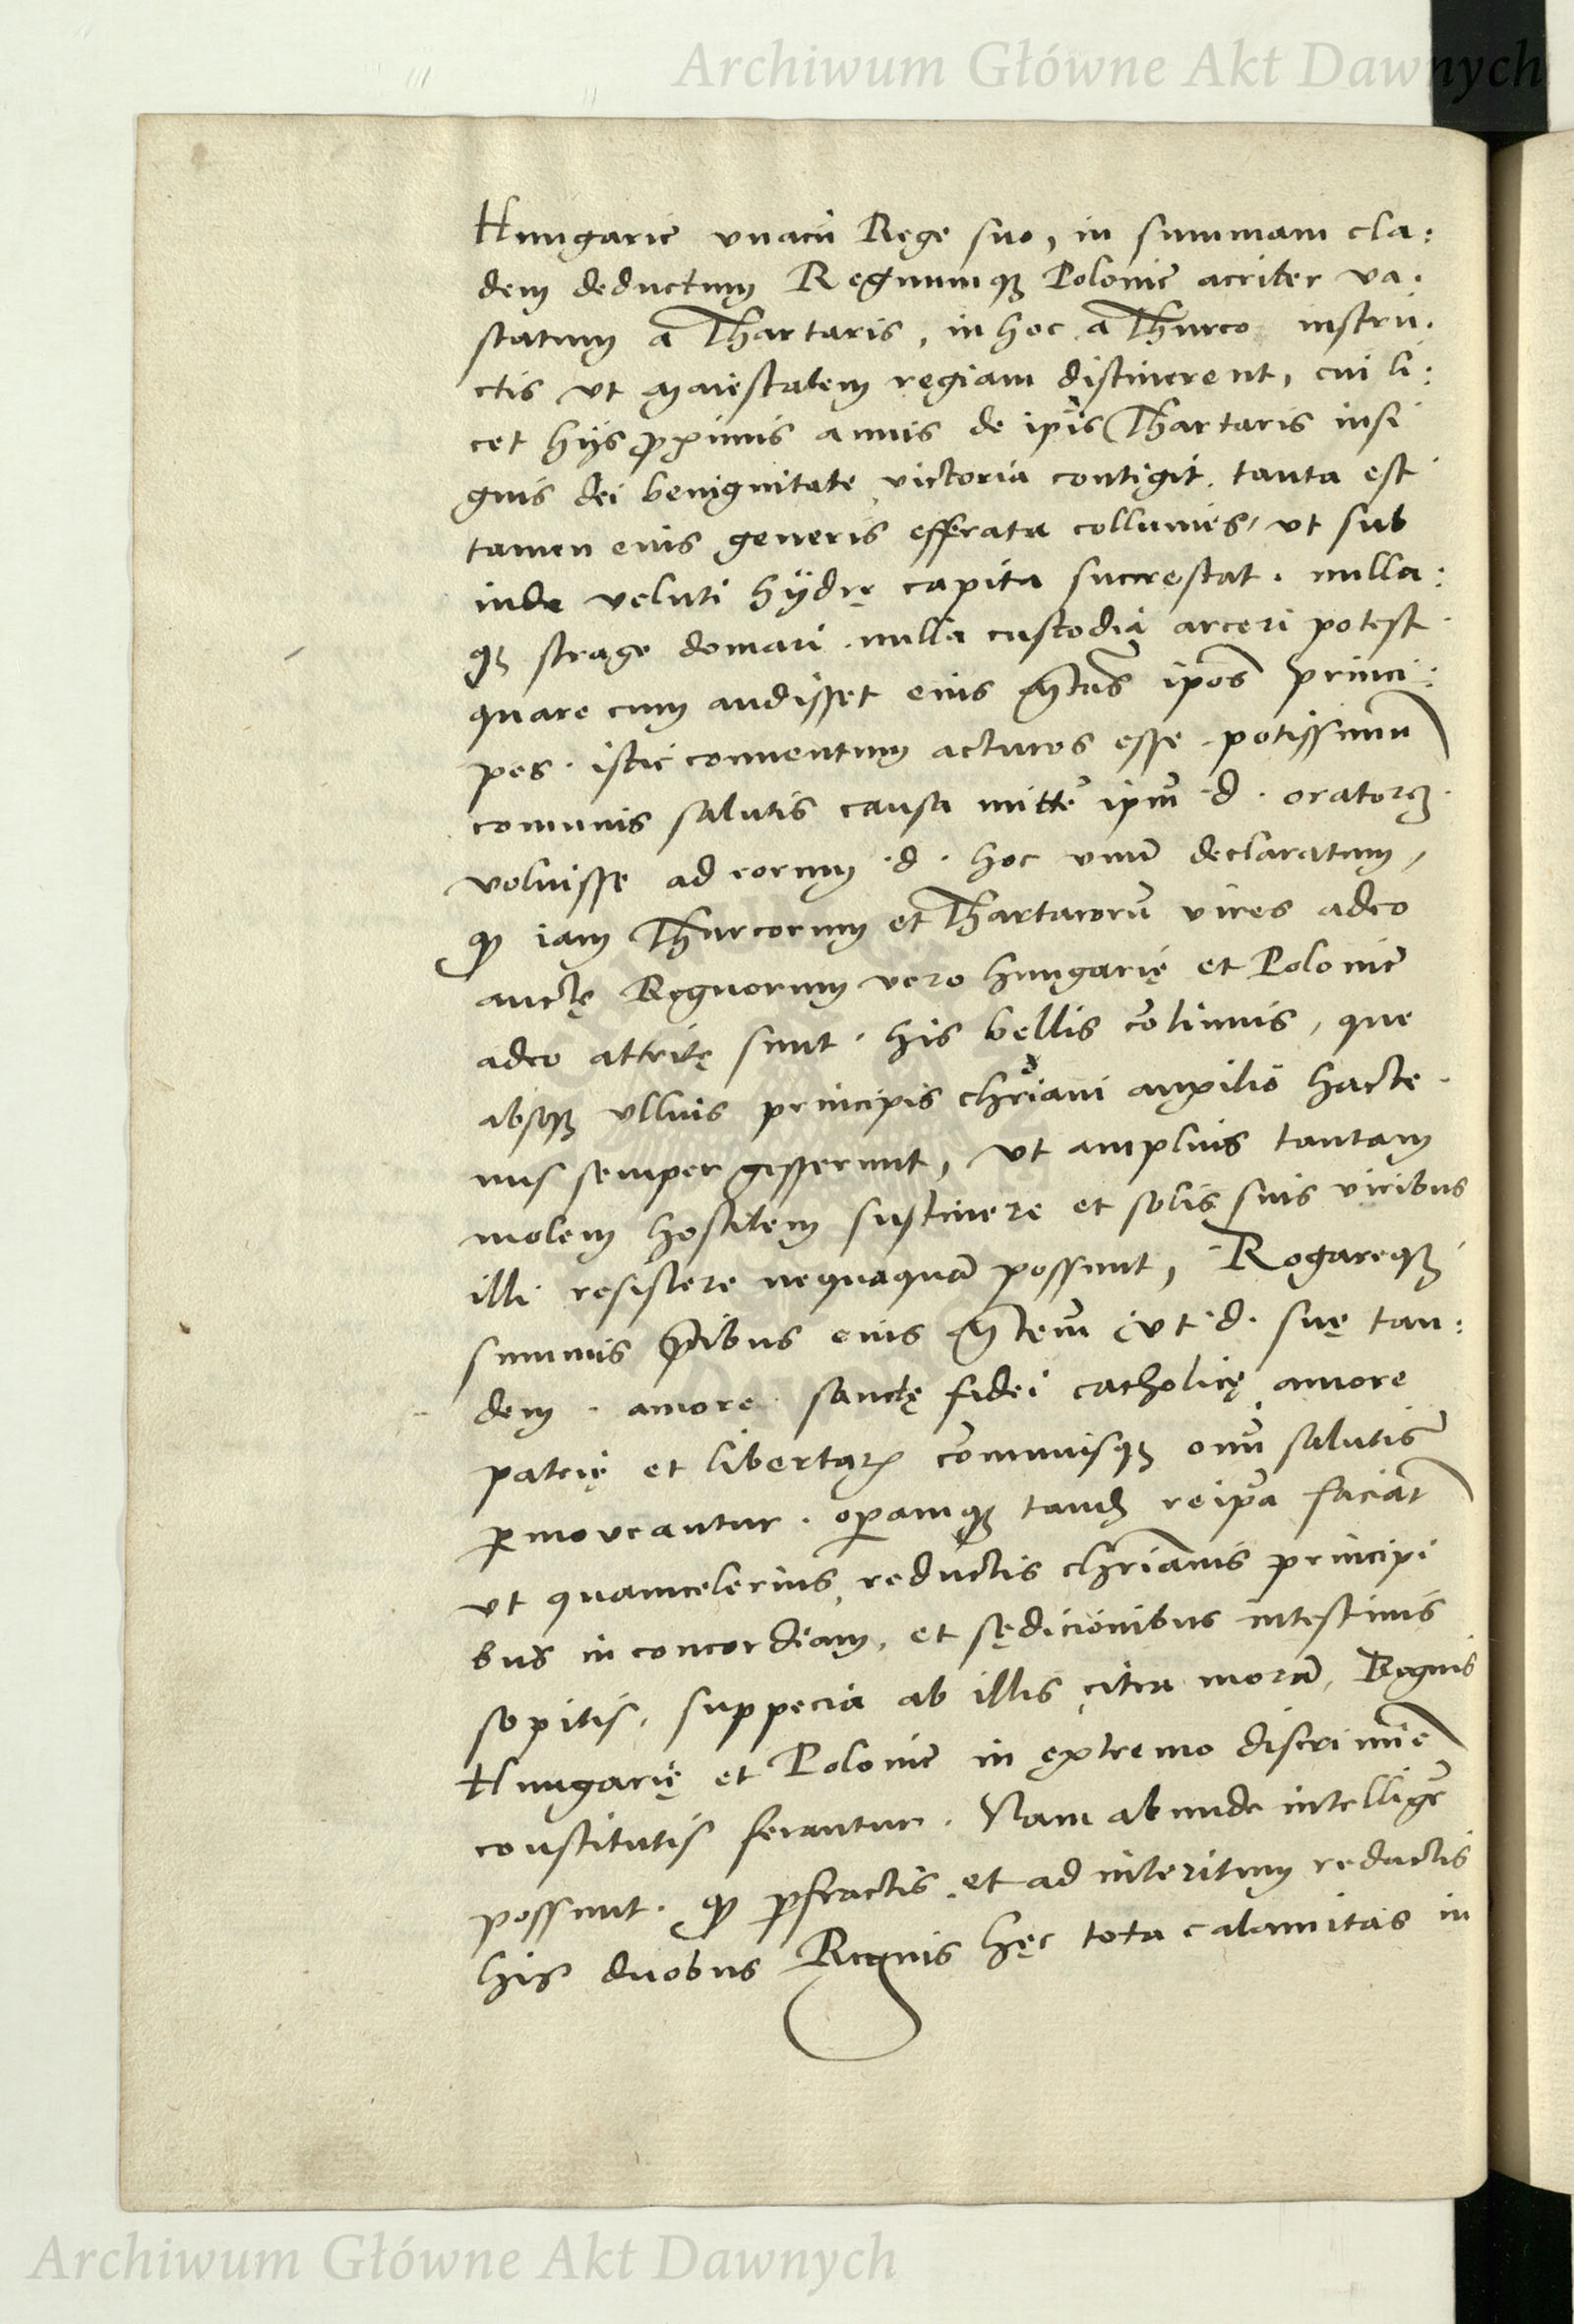 Archiwum Główne Akt Dawnych
Hungarie vnacū Rege suo, in summam cla:
dem deductum Regnumqȝ Polonie acriter va.
statum a Thartaris, in hoc a Thurco instru.
ctis vt Maiestatem regiam distinerent, cui li:
cet hijs ꝓximis annis de ip̄is Thartaris insi
gnis dei benignitate victoria contigit. tanta est
tamen eius generis efferata colluuies, vt sub
inde veluti hÿdrę capita succrescat. nulla:
qȝ strage domari. nulla custodia arceri potest.
quare cum audisset eius Mtas ip̄os princi:
pes. istic conuentum acturos esse. potissimū
comunis salutis causa mitte͛ ip̄m .d. oratorē.
voluisse ad eorum .d. hoc vnū declaratum,
qȝ iam Thurcorum et Thartarorū vires adeo
auctę Regnorum vero hungarię et Polonie
adeo attritę sunt. his bellis cōtinuis, que
absqȝ vllius principis chr̄iani auxilio hacte.
nus semper gesserunt, vt amplius tantam
molem hostilem sustinere et solis suis viribus
illi resistere nequaquā possunt, Rogareqȝ
summis p̄cibus eius Mtem vt .d. suę tan:
dem. amore sanctę fidei catholicę amore
patrię et libertatꝭ com̄unisqȝ om̄u salutis
ꝑmoueantur. oꝑamqȝ tandē reip̄a faciāt
vt quamcelerius reductis chr̄ianis principi
bus in concordiam, et sędicionibus intestinis
sopitis. suppecia ab illis citra morā, Regnis
Hungarię et Polonie in extremo discrimīe
constitutis ferantur. Nam abunde intellige͛
possunt. qȝ ꝑfractis. et ad interitum redactis
his duobus Regnis hęc tota calamitas in
Archiwum Główne Akt Dawnych